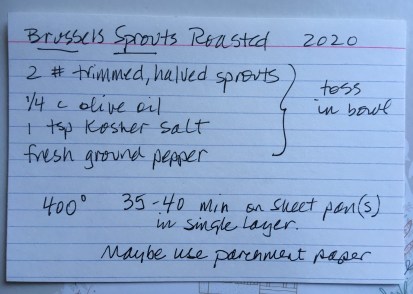 Brussels Sprouts Roasted 2020
2 # trimmed, halved sprouts
1/4 c olive oil
1 tsp Kosher salt
fresh ground pepper
toss
in bowl
400° 35-40 min on sheet pan(s)
in single layer.
Maybe use parchment paper